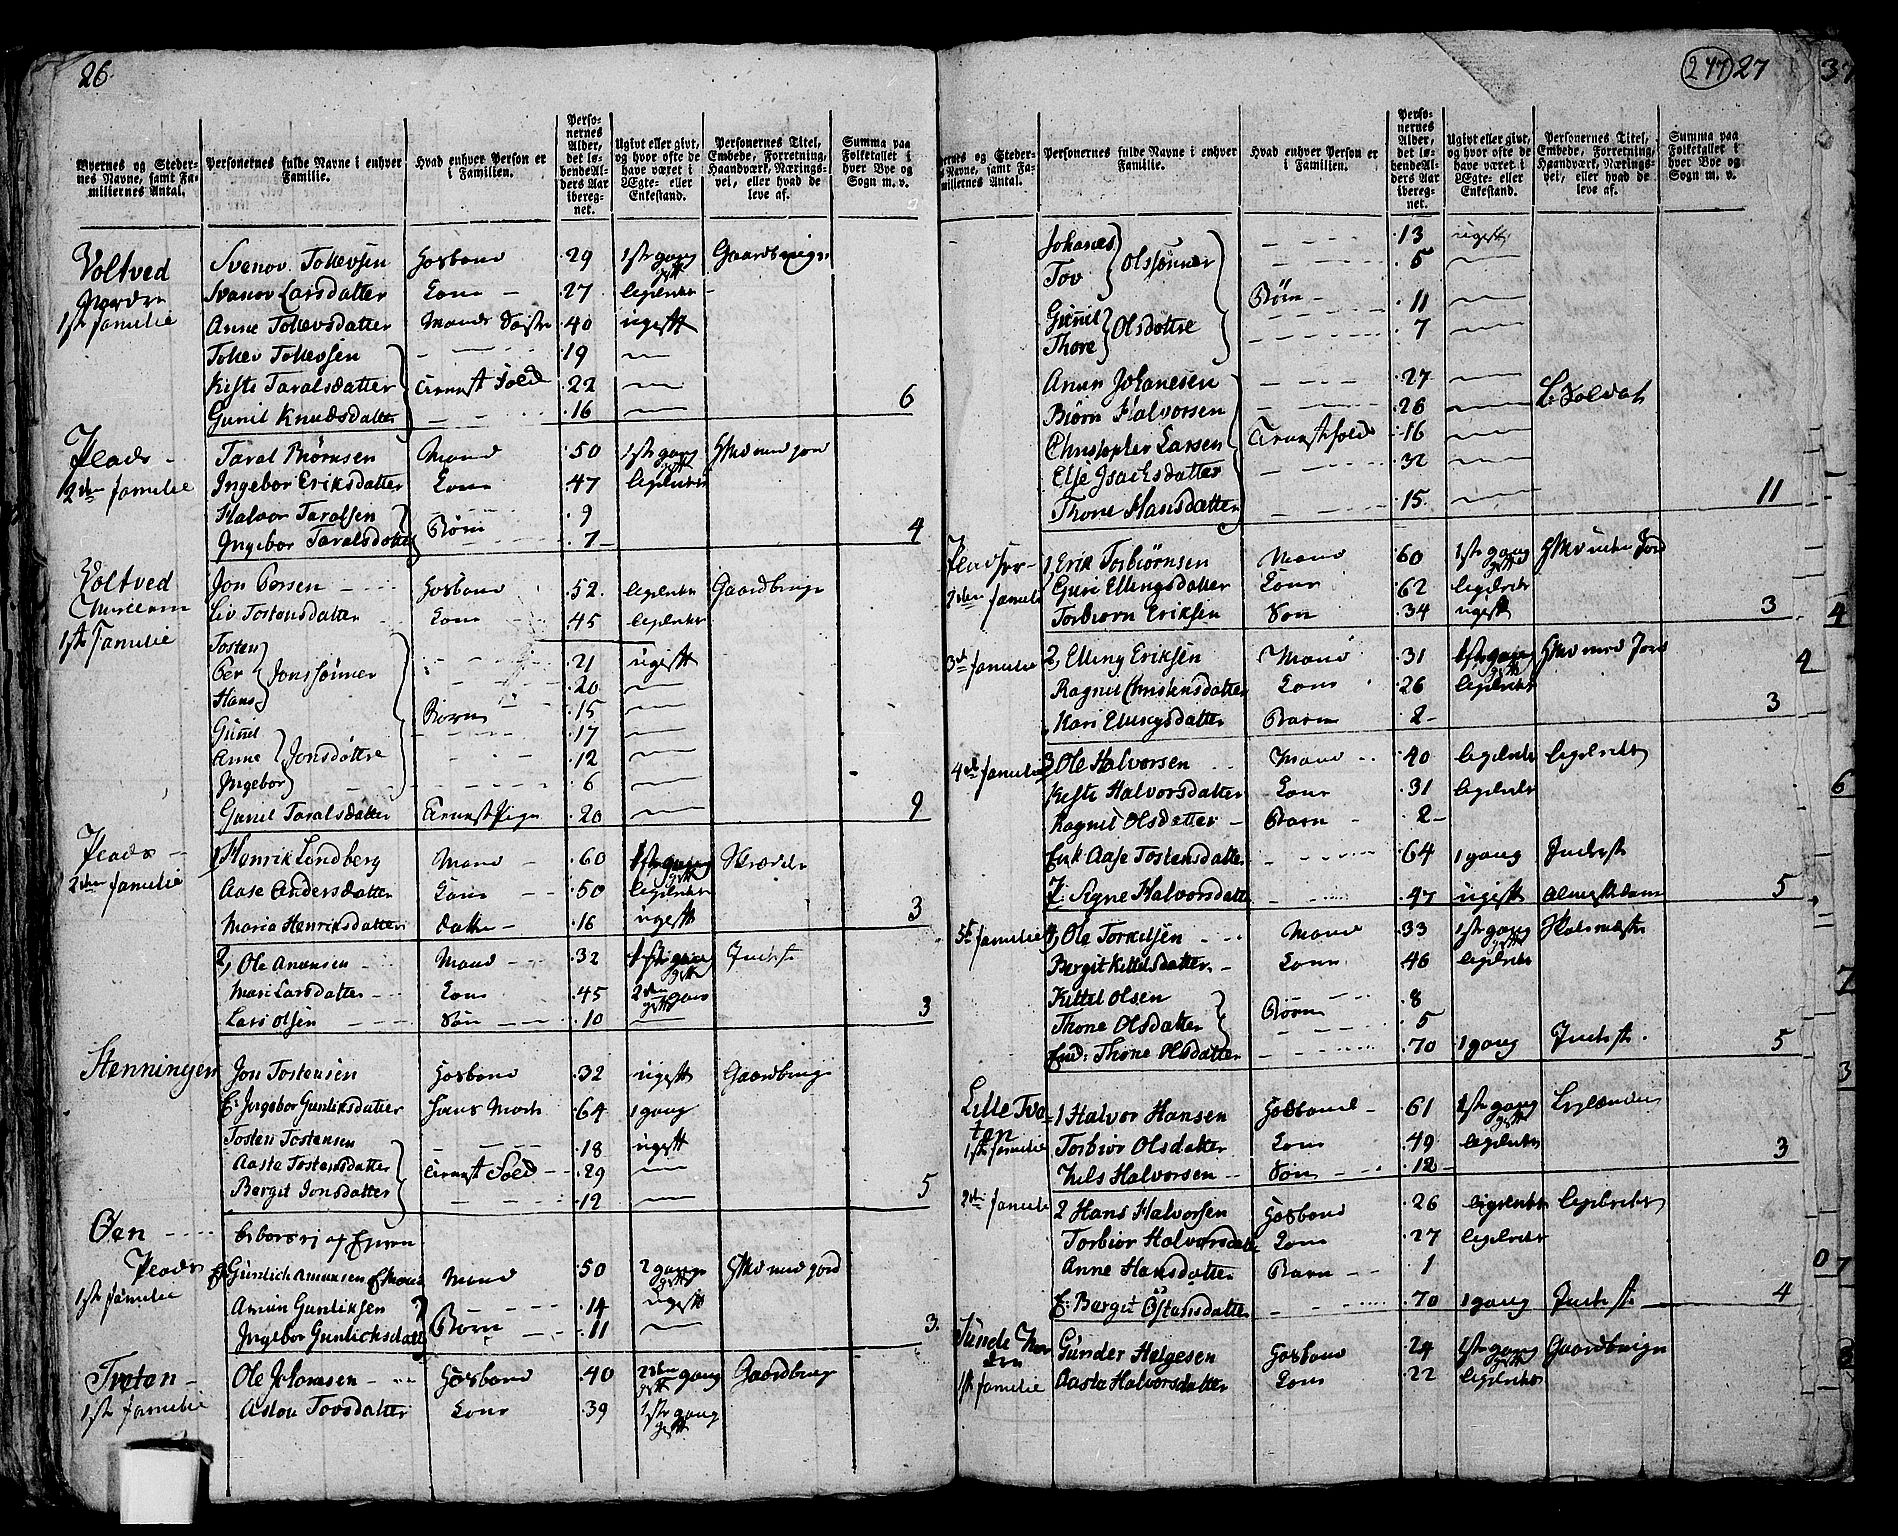 26.
Byernes og Steder-
nes Navne, samt Fa-
miliernes Antal.
Personernes fulde Navne i enhver
Familie.
Hvad enhver Person er
i Familien.
Perso-
nernes
Alder,
det lø-
bende Al-
ders Aar
ibereg-
net.
Ugivt eller givt,
og hvor ofte de
have været i
Ægte- eller
Enkestand.
Personernes Titel,
Embede, Forretning,
Haandværk, Nærings-
vei, eller hvad de
leve af.
Summa paa
Folketallet i
hver Bye og
Sogn m. v.
Voltved 1ste familie Svenov Tollevsen Hosbond 29 1ste gang gift Gaardbruger
Svanov Larsdatter Kone 27 ligeledes
Anne Tollevsdatter Mands Søster 40 ugift
Tollev Tollevsen 19
Kisti Taralsdatter 22
Gunil Knudsdatter 16 6
Plads 2den familie Taral Biørnsen Mand 50 1ste gang gift Hmd med jord
Ingebor Eriksdatter Kone 47 ligeledes
Halvor Taralsen 9
Ingebor Taralsdatter Børn 7 4
Voltved 1ste Familie Jon Persen Hosbond 52 ligeledes Gaardbruger
Liv Tostensdatter Kone 45 ligeledes
Tosten 21 ugift
Per Jonssønner 20
Hans 15
Gunil Børn 17
Anne Jonsdøttre 12
Ingebor 6
Gunil Taralsdatter 20 9
Plads 2den familie 1, Henrik Lindberg Mand 60 1ste gang gift Skræder
Aase Andersdatter Kone 50 ligeledes
Maria Henriksdatter datter 16 ugift 3
2, Ole Amunsen Mand 32 1ste gang gift Inderste
Mari Larsdatter Kone 45 2den gang gift
Lars Olsen Søn 10 3
Stenningen Jon Tostensen Hosbond 32 ugift Gaardbruger
E: Ingebor Gunliksdatter Hans Moder 64 1 gang
Tosten Tostensen 18 ugift
Aaste Tostensdatter 29
Bergit Jonsdatter 12 5
Øen
Plads 1ste familie Gunlich Amunsen Mand 50 2 gange gift Hmd med jord
Amun Gunliksen 14 ugift
Ingebor Gunlichsdatter Børn 11 3.
Tveten 1ste familie Ole Johannsen Hosbond 40 2den gang gift Gaardbruger
Aslou Tovsdatter Kone 39 1ste gang gift
247 27
Byernes og Steder-
nes Navne, samt Fa-
miliernes Antal.
Personernes fulde Navne i enhver
Familie.
Hvad enhver Person er
i Familien.
Perso-
nernes
Alder,
det lø-
bende Al-
ders Aar
ibereg-
net.
Ugivt eller givt,
og hvor ofte de
have været i
Ægte- eller
Enkestand.
Personernes Titel,
Embede, Forretning,
Haandværk, Nærings-
vei, eller hvad de
leve af.
Summa paa
Folketallet i
hver Bye og
Sogn m. v.
Johanes 13 ugift
Tov Olssønner 5
Gunil Børn 11
Thore Olsdøttre 7
Amun Johanesen 27
Biørn Halvorsen 26 Soldat
Christopher Larsen 16
Else Isachsdatter 32
Thone Hansdatter 15 11
2den familie 1, Erik Torbiørnsen Mand 60 1ste gang gift Hmd uden Jord
Guri Ellingsdatter Kone 62 ligeledes
Torbiorn Eriksen Søn 34 ugift 3
3de familie 2, Elling Eriksen Mand 31 1ste gang gift Hmd med Jord
Ragnil Christensdatter Kone 26 ligeledes
Kari Elingsdatter Barn 2 3
4de familie 3 Ole Halvorsen Mand 40 ligeledes ligeledes
Kisti Halvorsdatter Kone 31 ligeledes
Ragnil Olsdatter Barn 2
Enk Aase Tostensdatter 64 1 gang Inderste
P: Signe Halvorsdatter 47 ugift Almisselem 5
5te familie 4, Ole Torkilsen Mand 33 1ste gang gift Skolemester
Bergit Kittelsdatter Kone 46 ligeledes
Kittel Olsen 8
Thone Olsdatter Børn 5
Enk: Thone Olsdatter 70 1 gang Inderste 5
Lille Tveten 1ste familie 1 Halvor Hansen Hosbond 61 1ste gang gift
Torbior Olsdatter Kone 49 ligeledes
Nels Halvorsen Søn 12 3
2den familie 2 Hans Halvorsen Hosbond 26 ligeledes ligeledes
Torbior Halvorsdatter Kone 27 ligeledes
Anne Hansdatter Barn 1
E: Bergit Östensdatter 70 1 gang Inderste 4
Sunde 1ste familie Gunder Helgesen Hosbond 24 1ste gang gift Gaardbruger
Aaste Halvorsdatter Kone 22 ligeledes